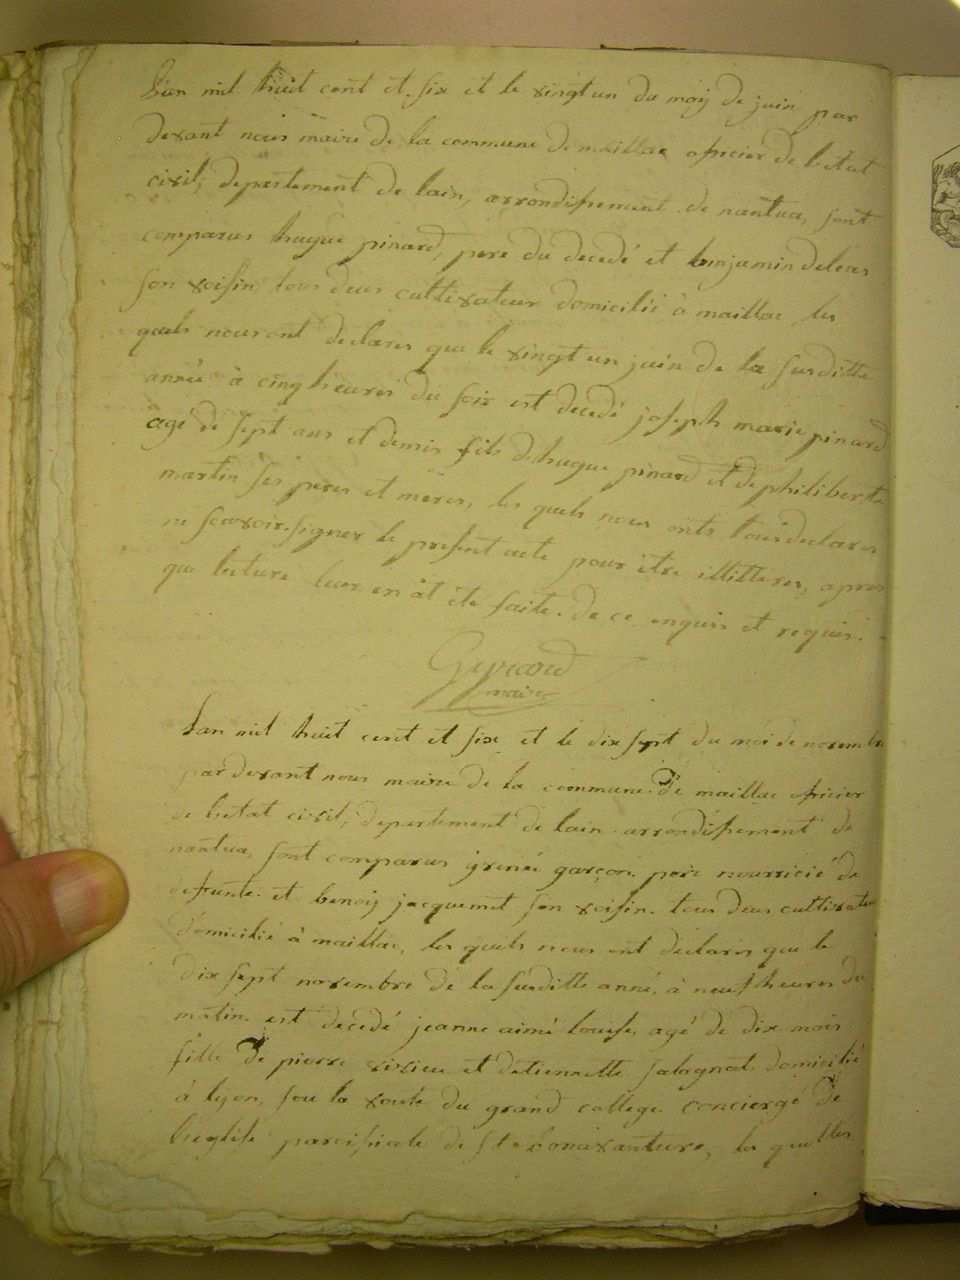 Lan mil huit cent et six et le vingt un du moij de juin par
devant nous maire de la commune de maillac oficier de letat
civil, departement de lain, arrondissement de nantua, sont
comparus hugue pinard, pere du decedé et binjamin
son voisin tous deus cultivateur domicilié à maillac les
quels nous ont declares que le vingt un juin de la susditte
année à cinq heures du soir est decedé joseph marie pinard
agé de sept ans et demis fils de hugue pinard et de philiberte
martin ses peres et meres, les quels nous onts tous declares
ne scavoir signer le present acte pour être illitteres, apres
que lecture leur en ât ete faite. de ce enquis et requis.
maire
Lan mil huit cent et six et le dix sept du moi de novembre
par devant nous maire de la commune de maillac oficier
de letat civil, departement de lain arrondissement de
nantua, sont comparus garçon pere nourricié de
defunte et benoij jacquemet son voisin tous deus cultivateur
domicilié à maillac, les quels nous ont declares que le
dix sept novembre de la susditte anné, à neuf heures du
matin est decedé jeanne aimé louise, agé de dix mois
fille de pierre et detiennette salagnat domicilié
à lyon, sou la voute du grand college concierge de
leglise paroisicale de ste bonavanture, les quelles